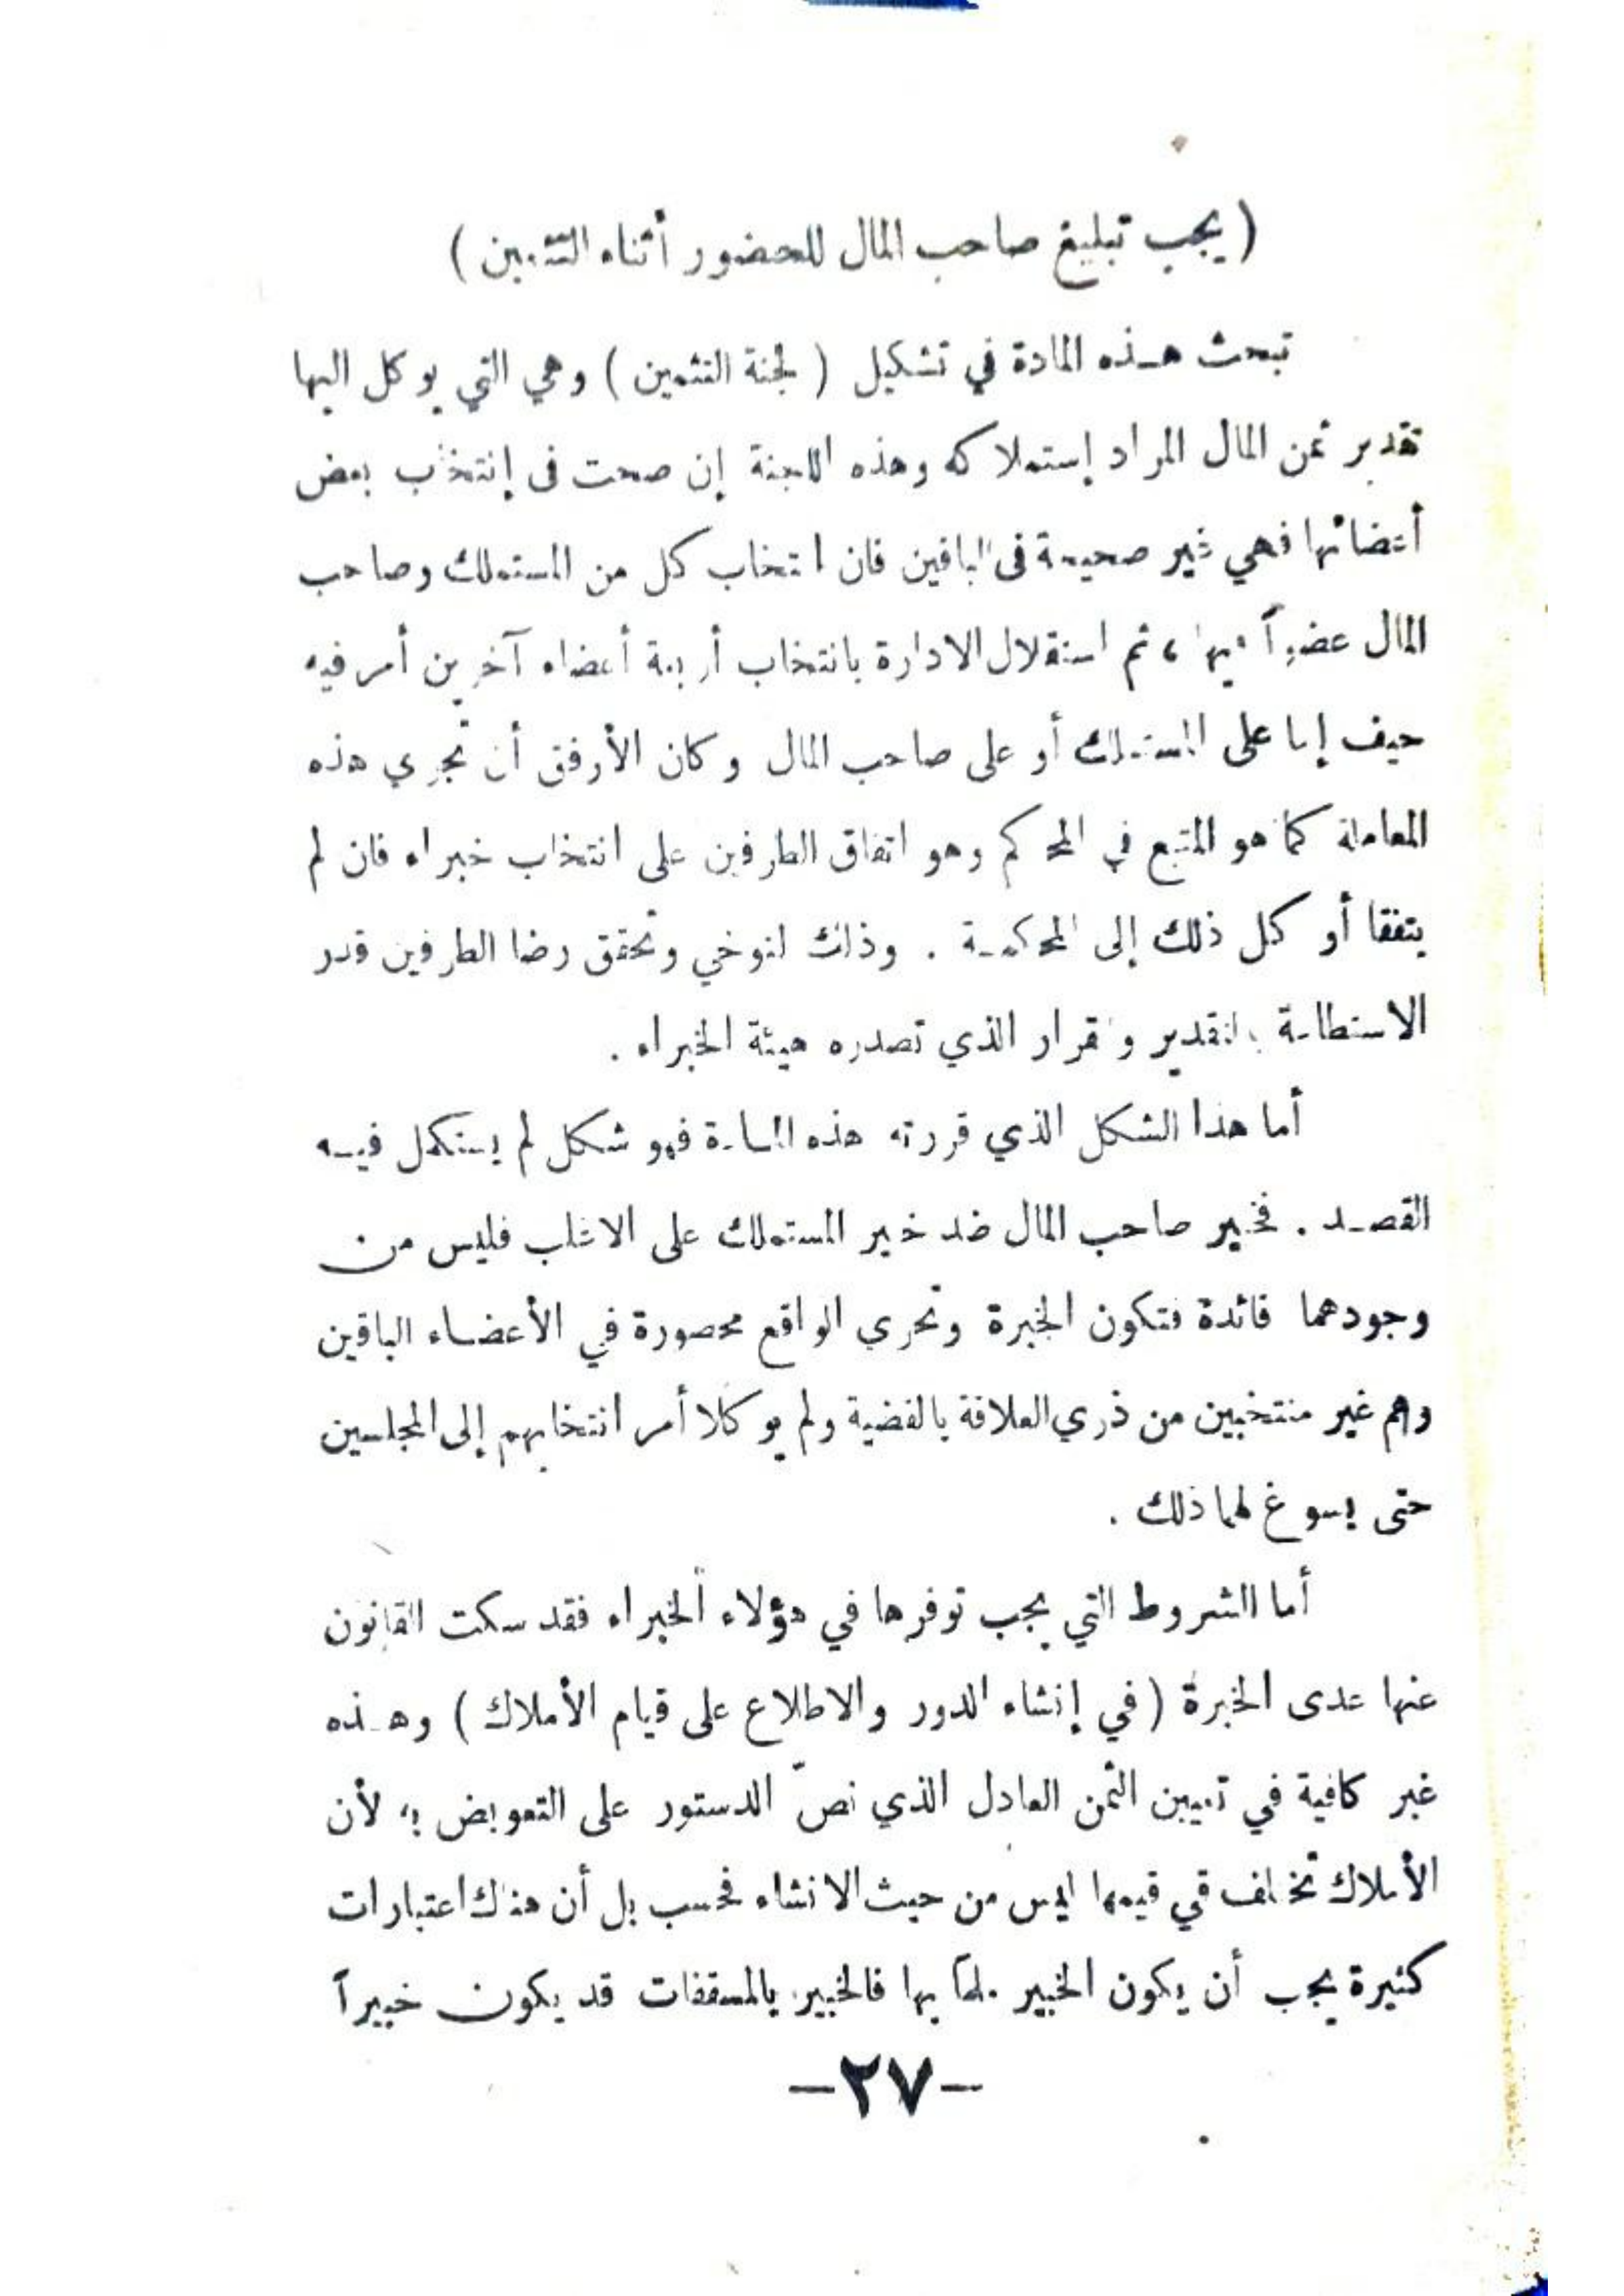 ( يجب تبليغ صاحب المال للحضور أثناء التثمين )
تبحث هـذه المادة في تشكيل ( لجنة التثمين ) وهي التي يوكل اليها
تقدير ثمن المال المراد إستملاكه وهذه اللجنة إن صحت فى إنتخاب بعض
أعضائها فهي غير صحيحة فى الباقين فان انتخاب كل من المستملك وصاحب
المال عضواً فيها ، ثم استقلال الادارة بانتخاب أربعة أعضاء آخرين أمر فيه
حيف إما على المستملك أو على صاحب المال وكان الأرفق أن تجري هذه
المعاملة كما هو المتبع في المحاكم وهو اتفاق الطرفين على انتخاب خبراء فان لم
يتفقا أوكل ذلك إلى المحكمـة . وذلك لتوخي وتحقق رضا الطرفين قدر
الاستطاعة بالتقدير والقرار الذي تصدره هيئة الخبراء .
أما هذا الشكل الذي قررته هذه المـادة فهو شكل لم يستكمل فيـه
القصـد . فخبير صاحب المال ضد خبير المستملك على الاغلب فليس من
وجودهما فائدة فتكون الخبرة وتحري الواقع محصورة في الأعضـاء الباقين
وهم غير منتخبين من ذري العلاقة بالقضية ولم يوكلا أمر انتخابهم إلى المجلسين
حتى يسوغ لهما ذلك .
أما الشروط التي يجب توفرها في هؤلاء الخبراء فقد سكت القانون
عنها عدى الخبرة ( في إنشاء الدور والاطلاع على قيام الأملاك ) وهـذه
غير كافية في تعيين الثمن العادل الذي نصّ الدستور على التعويض به لأن
الأملاك تختلف قي قيمها ليس من حيث الانشاء فحسب بل أن هناك اعتبارات
كثيرة يجب أن يكون الخبير ملماً بها فالخبير بالمسقفات قد يكون خبيراً
-٢٧-